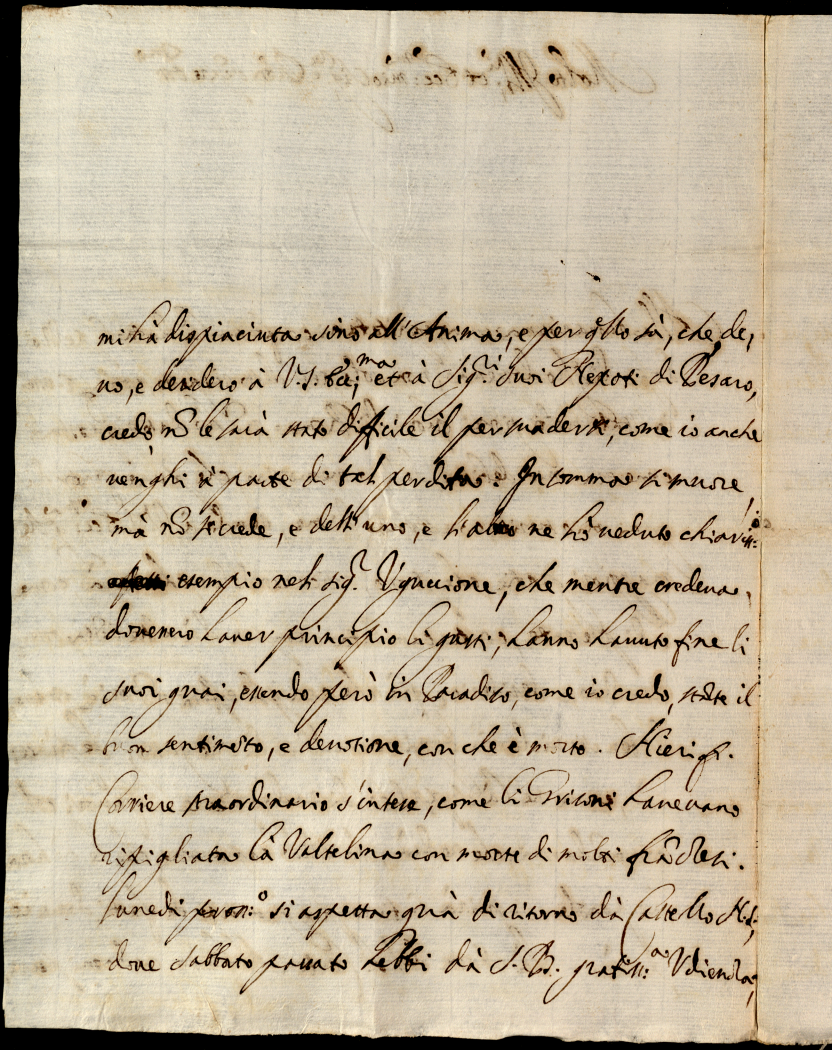 mi hà dispiaciuta sino all'Anima, e per q.llo sà, che de,
uo, e desidero à V.S. Ecc.ma et à Sig.ri suoi Nepoti di Pesaro,
credo nõ le sarà stato difficile il persuadersi, come io anche
uenghi à parte di tal perdita. In somma si muore,
mà nõ si crede, e dell'uno, e l'altro ne hò ueduto chiariss:o
esempio nel Sig.r Uguccione, che mentre credeua,
douessero hauer principio li gusti, hanno hauuto fine li
suoi guai, essendo però in Paradiso, come io credo, stãte il
buon sentimẽto, e deuotione, con che è morto. Hieri p.
Corriere straordinario s'intese, come li Grisoni haueuano
ripigliata la Valtelina con morte di molti frãcesi.
Lunedì pross:o si aspetta quà di ritorno dà Castello N.S.,
doue Sabbato passato hebbi dà S. B. gratiss:a Udienza,